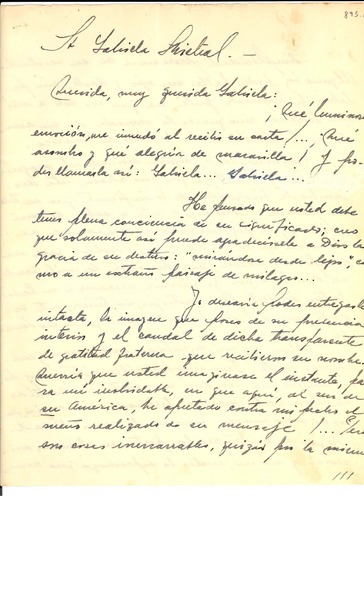 895-
Sta Gabriela Mistral. —
Querida, muy querida Gabriela:
¡Qué luminosa
emoción, me inundó al recibir su carta! ... ¡Qué
asombro y qué alegría de maravilla! Y po-
der llamarla así: Gabriela... Gabriela...
He pensado que usted debe
tener plena conciencia de su significado; creo
que solamente así puede agradecérsele a Dios la
gracia de su destino: "mirándose desde lejos", co
mo a un extraño paisaje de milagro...
Yo desearía poder entregarle
intacta, la imagen que poseo de su presencia
interior y el caudal de dicha transparente
de gratitud fraterna que recibieron su nombre.
Querría que usted imaginase el instante, pa
ra mí inolvidable, en que aquí, al sur de
su América, he apretado contra mi pecho el
sueño realizado de su mensaje! ... Pero
son cosas inenarrables, quizás por la misma